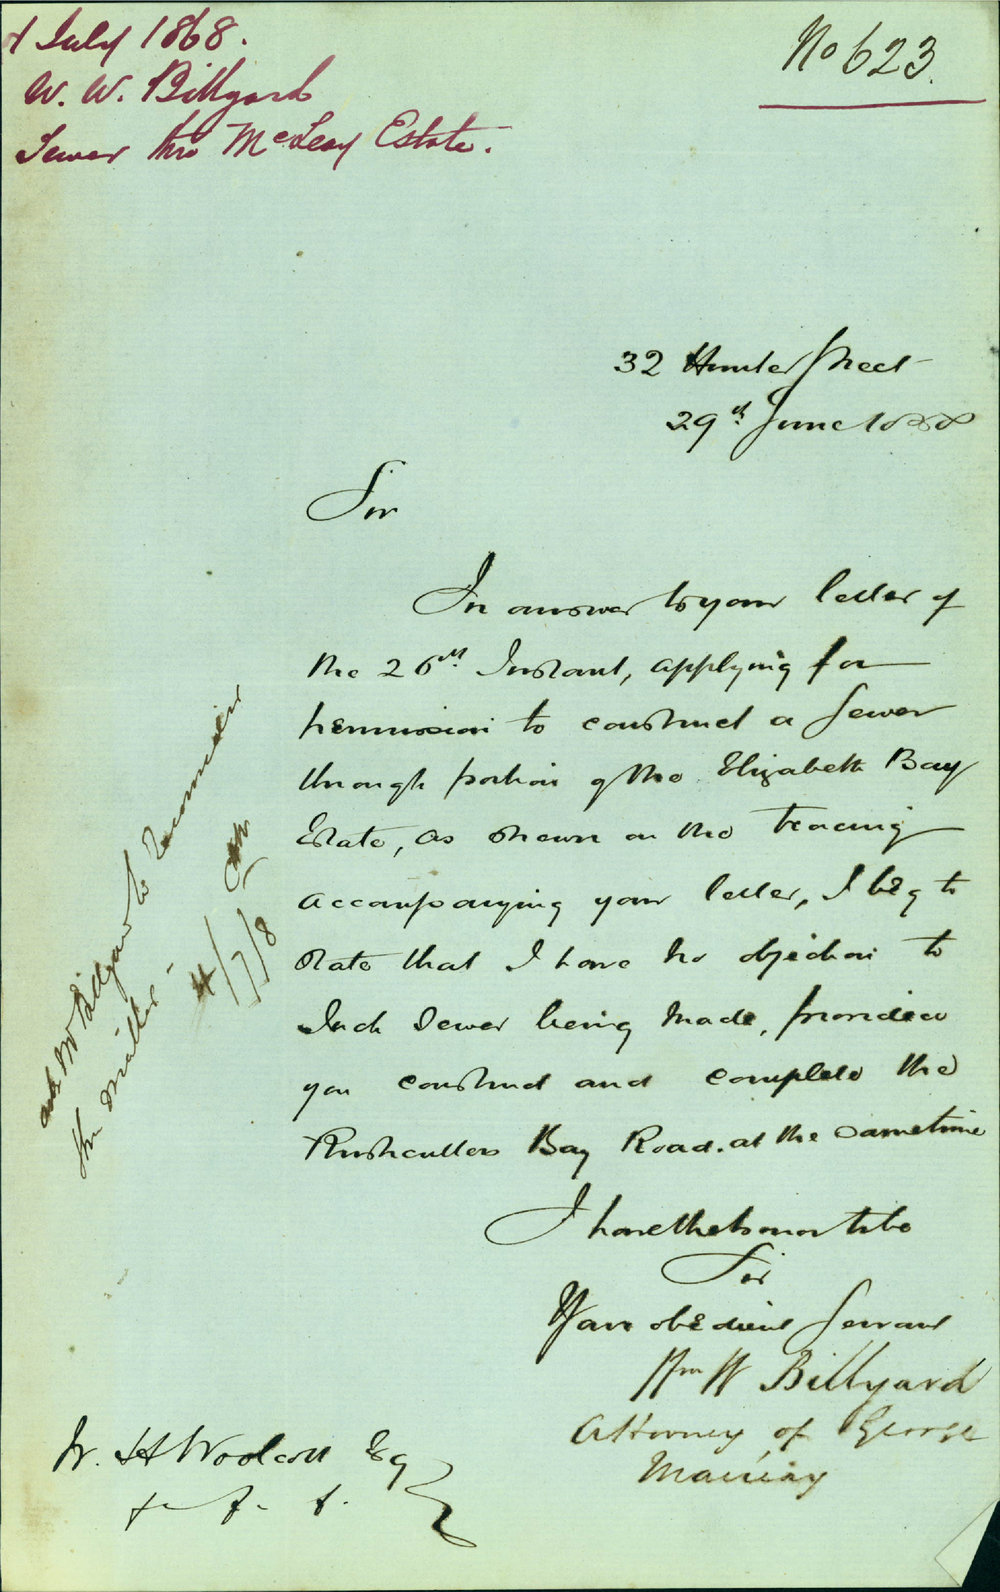 July 1868.
W. W. Billyard
Sewer thro McLeay Estate.
No 623.
32 Hunter Street
29th June 1868
Sir
In answer to your letter of
the 26th Instant, applying for
permission to construct a Sewer
through portion of the Elizabeth Bay
Estate, as shewn on the tracing
accompanying your letter, I beg to
state that I have no objection to
such Sewer being made, provided
you construct and complete the
Rushcutters Bay Road. at the same time
I have the honor to be
Sir
Your obedient Servant
Wm W Billyard
Attorney of George
Macleay
W. H Woolcott Esq
ask Mr Billyard to reconsider
the matter -
4/7/8